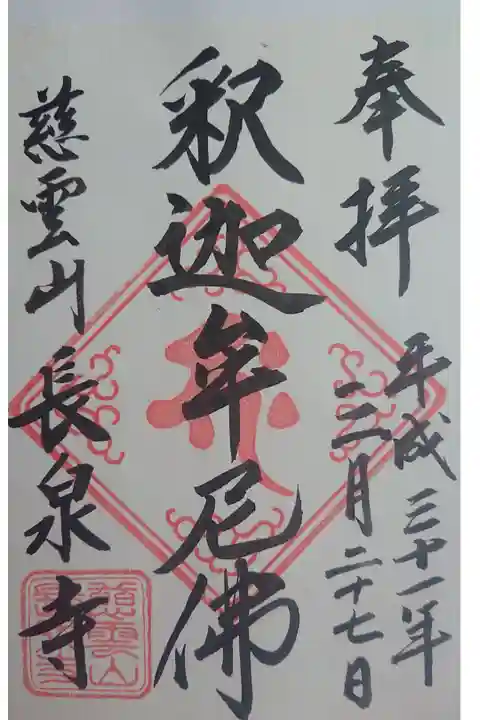 奉拝
平成三十一年
二月二十七日
釈迦牟尼佛
慈雲山
長泉寺
慈雲山